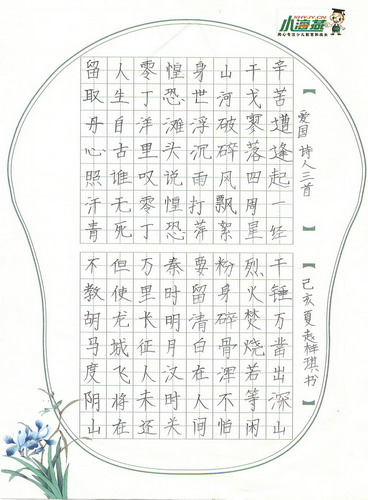 XHY-JY.CN
小海燕
【 爱国 诗人三首 】
【 己亥夏赵梓琪书 】
辛苦遭逢起一经
干戈寥落四周星
山河破碎风飘絮
身世浮沉雨打萍
惶恐滩头说惶恐
零丁洋里叹零丁
人生自古谁无死
留取丹心照汗青
千锤万凿出深山
烈火焚烧若等闲
粉身碎骨浑不怕
要留清白在人间
秦时明月汉时关
万里长征人未还
但使龙城飞将在
不教胡马度阴山